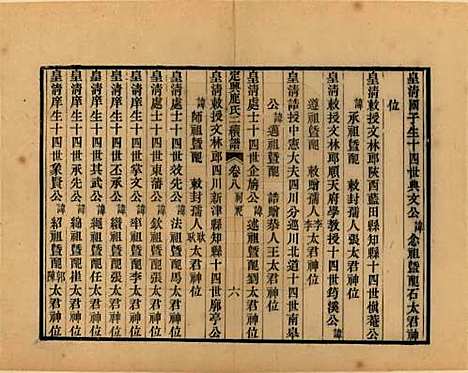 皇清國子生十四世典文公諱念祖暨配石太君神
位
皇清敕授文林郎陝西藍田縣知縣十四世慎菴公
諱承祖暨配 敕封孺人張太君神位
皇清敕授文林郎順天府學教授十四世筠溪公諱
遵祖暨配 敕贈孺人李太君神位
皇清誥授中憲大夫四川分巡川北道十四世南皋
公諱邁祖暨配 誥贈恭人王太君神位
皇清處士十四世企旃公諱述祖暨配劉太君神位
定興鹿氏二續譜 卷八 祠祀 六
皇清敕授文林郎四川新津縣知縣十四世廓亭公
諱師祖暨配 敕封孺人耿耿太君神位
皇清處士十四世效先公諱法祖暨配馬太君神位
皇清處士十四世東藩公諱欽祖暨配張太君神位
皇清庠生十四世掌文公諱率祖暨配李太君神位
皇清庠生十四世丕承公諱續祖暨配張太君神位
皇清庠生十四世其武公諱繩祖暨配任太君神位
皇清庠生十四世承先公諱緦祖暨配崔太君神位
皇清庠生十四世象賢公諱紹祖暨配郭陳太君神位